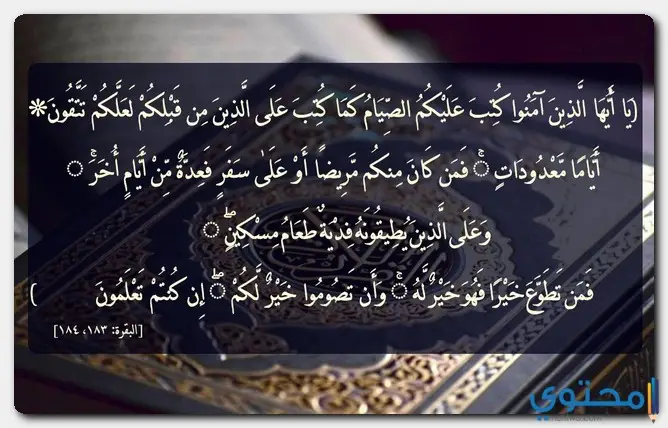 (يَا أَيُّهَا الَّذِينَ آمَنُوا كُتِبَ عَلَيْكُمُ الصِّيَامُ كَمَا كُتِبَ عَلَى الَّذِينَ مِن قَبْلِكُمْ لَعَلَّكُمْ تَتَّقُونَ*
أَيَّامًا مَّعْدُودَاتٍ ۚ فَمَن كَانَ مِنكُم مَّرِيضًا أَوْ عَلَىٰ سَفَرٍ فَعِدَّةٌ مِّنْ أَيَّامٍ أُخَرَ ۚ
وَعَلَى الَّذِينَ يُطِيقُونَهُ فِدْيَةٌ طَعَامُ مِسْكِينٍ ۖ
فَمَن تَطَوَّعَ خَيْرًا فَهُوَ خَيْرٌ لَّهُ ۚ وَأَن تَصُومُوا خَيْرٌ لَّكُمْ ۖ إِن كُنتُمْ تَعْلَمُونَ)
[البقرة: ١٨٣، ١٨٤]
محتوي